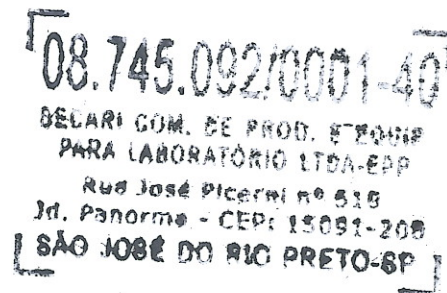 08.745.092/0001-40
BECARI COM. DE PROD. E EQUIP
PARA LABORATÓRIO LTDA-EPP
Rua José Picerni nº 518
Jd. Panorma - CEP: 15091-200
SÃO JOSÉ DO RIO PRETO-SP